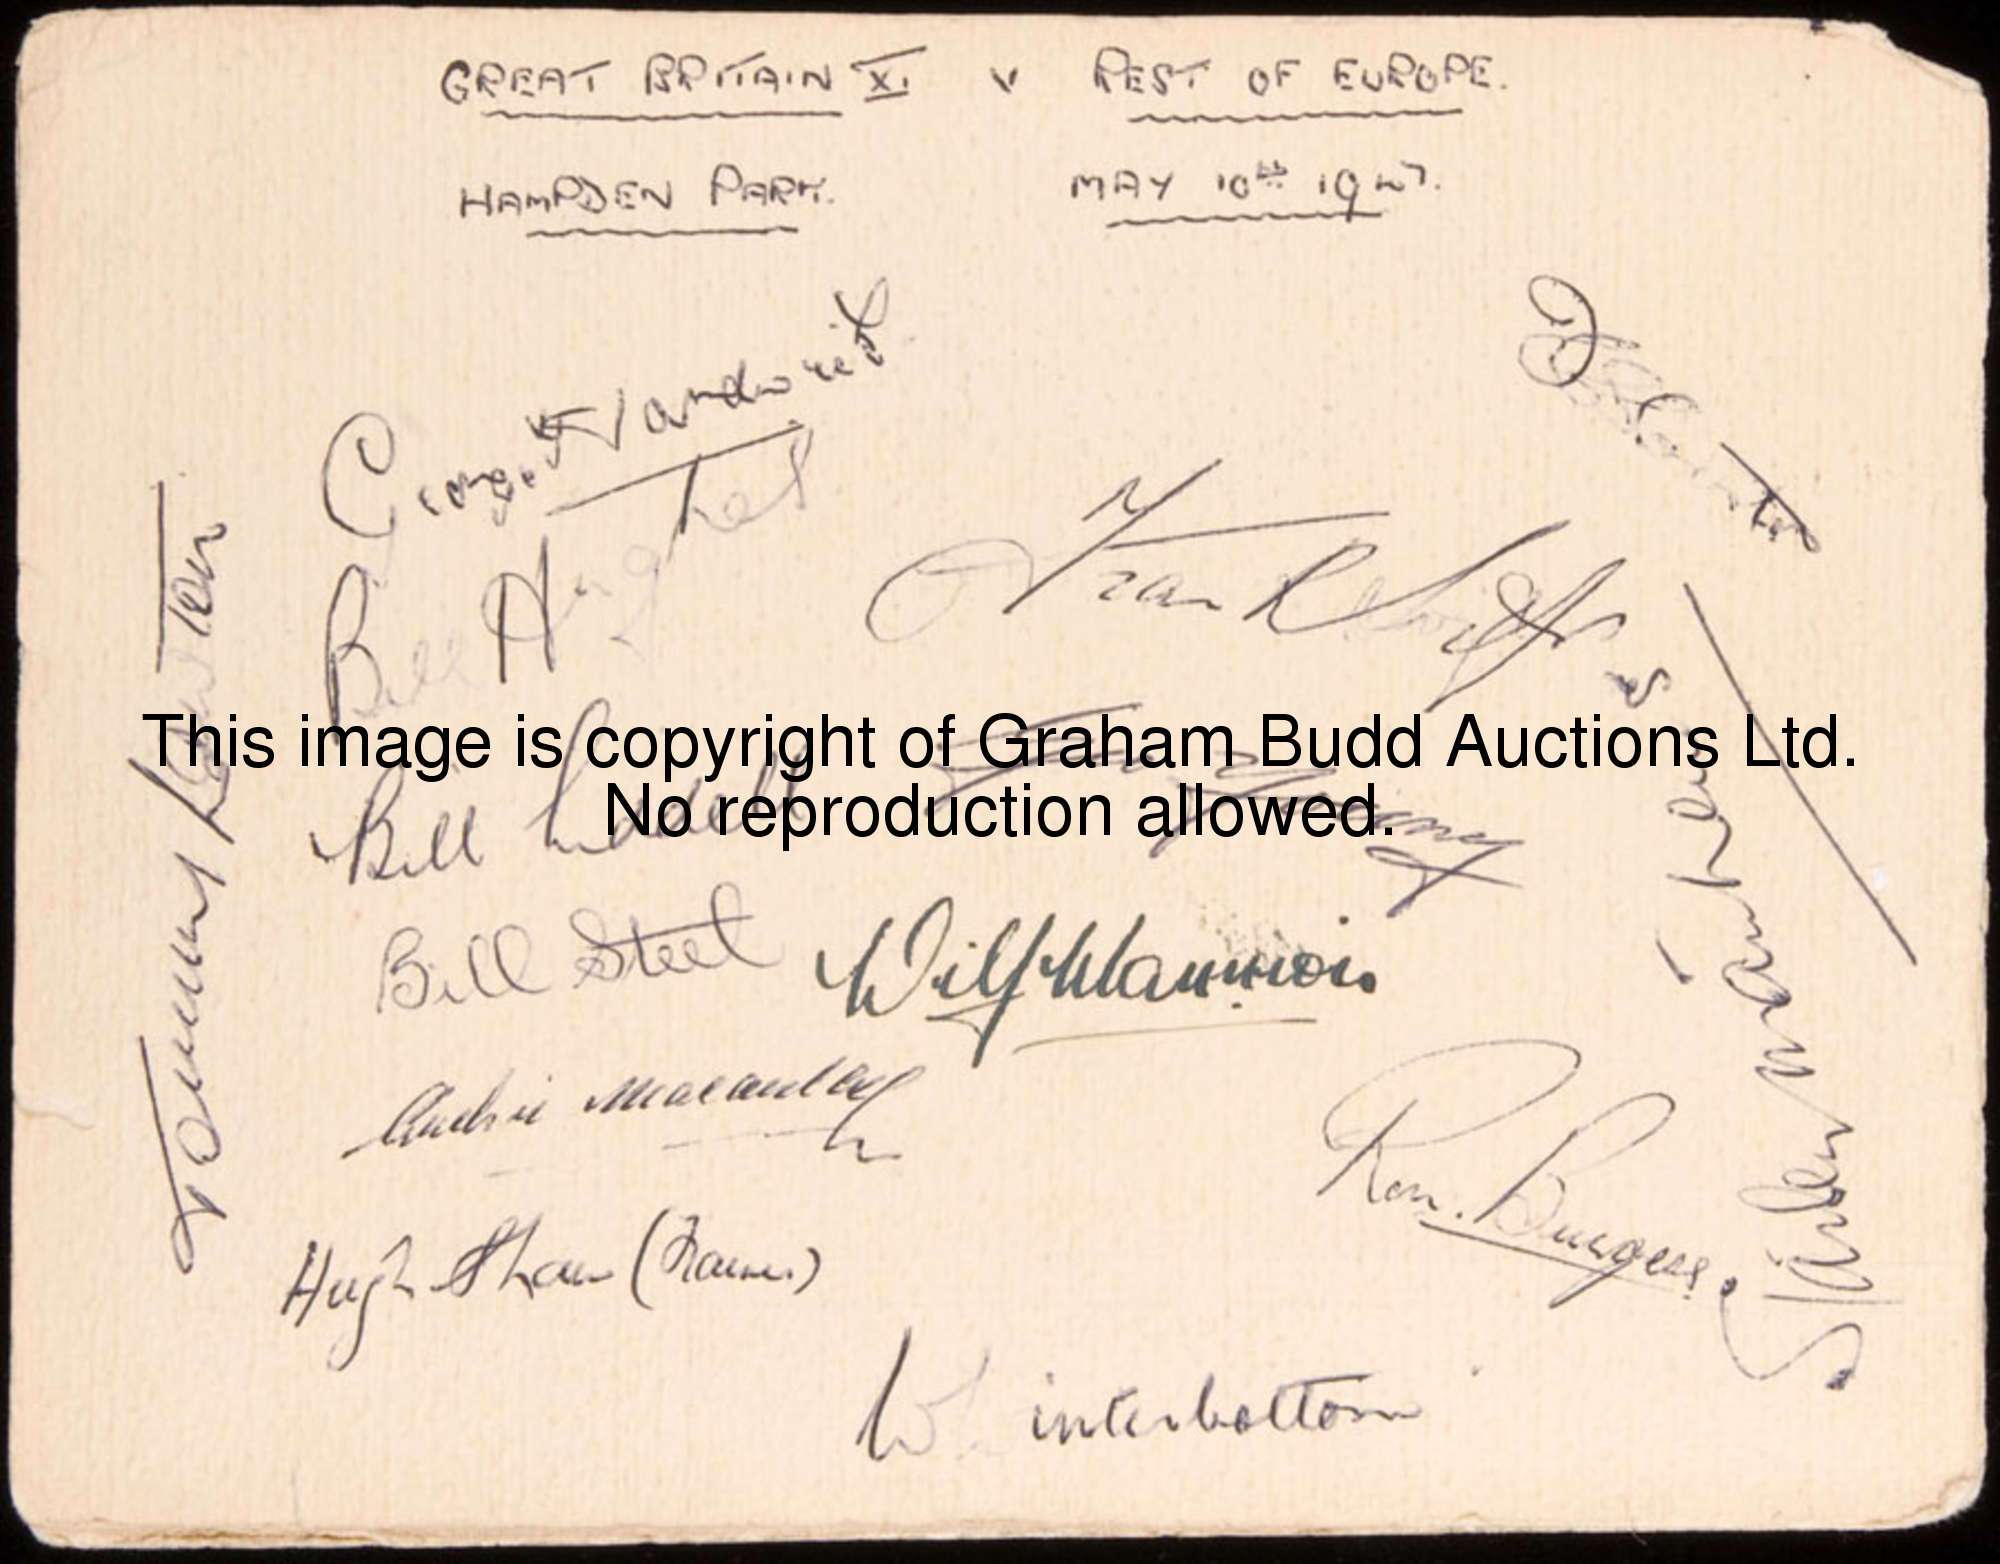 GREAT BRITAIN XI. v REST OF EUROPE.
HAMPDEN PARK. MAY 10th 1947.
George Hardwick
Bill Hughes
Frank Swift
Tommy Lawton
This image is copyright of Graham Budd Auctions Ltd.
No reproduction allowed.
Bill Liddell
Stanley Matthews
Bill Steel
Wilf Mannion
Archie Macaulay
Ron. Burgess.
Hugh Shaw (Trainer)
W Winterbottom